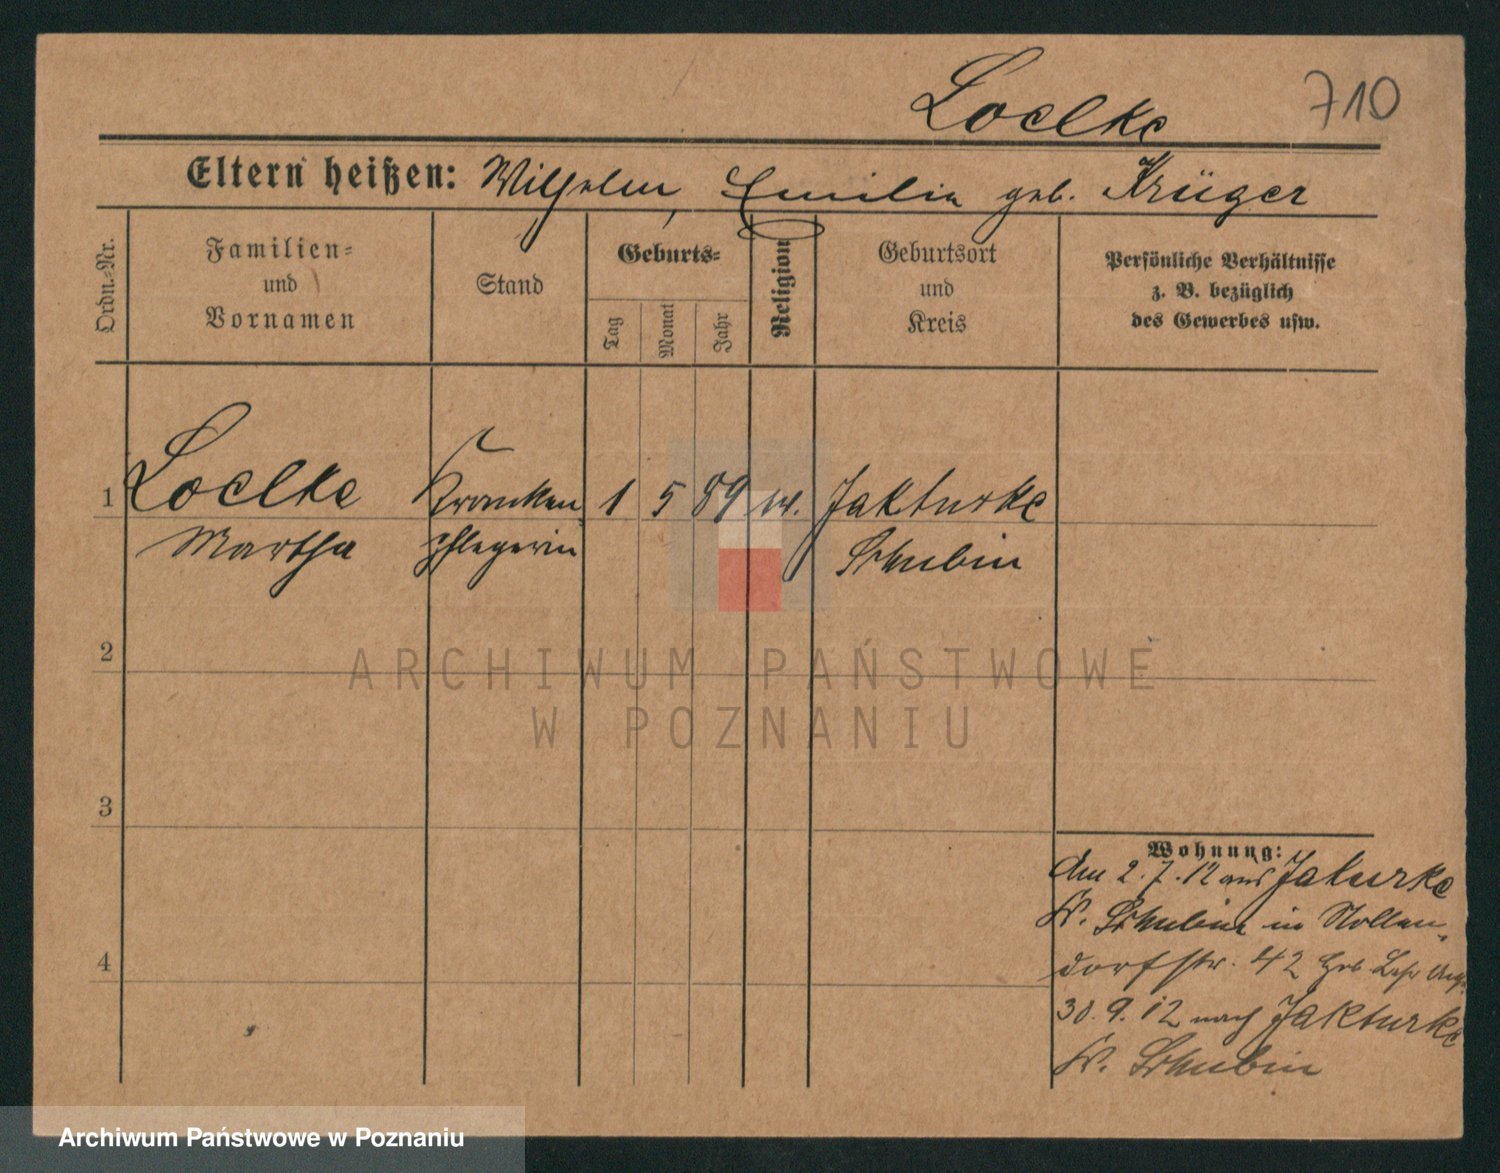 Loelke
710
Eltern heißen: Wilhelm, Emilie geb. Krüger
Ordn.-Nr.
Familien-
und
Vornamen
Stand
Geburts-
Tag
Monat
Jahr
Religion
Geburtsort
und
Kreis
Persönliche Verhältnisse
z. B. bezüglich
des Gewerbes usw.
1 Loelke Kranken 1 5 89 ev. Jakturke
Martha pflegerin Schubin
2
ARCHIWUM PAŃSTWOWE
W POZNANIU
3
Wohnung:
Am 2.7.12 aus Jakturke
Kr. Schubin in Nollen-
dorfstr. 42 Geb. Lehr Anst.
4
30.9.12 nach Jakturke
Kr. Schubin
Archiwum Państwowe w Poznaniu